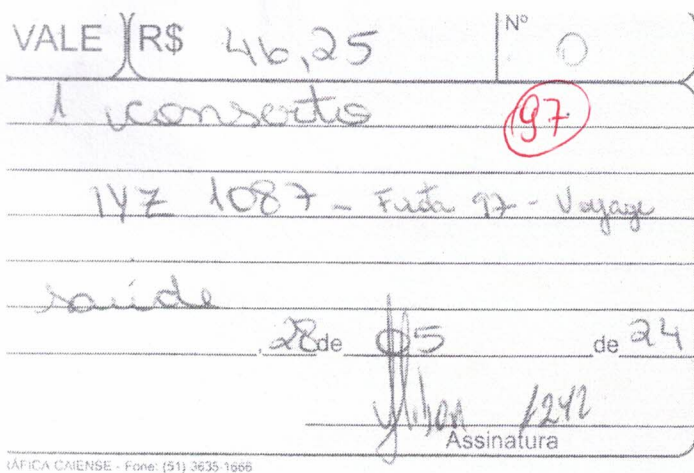 VALE R$ 46,25 Nº 0
1 conserto 97
IYZ 1087 - Frota 97 - Voyage
saúde
, 28 de 05 de 24
1242
Assinatura
ÁFICA CAIENSE - Fone: (51) 3635-1666